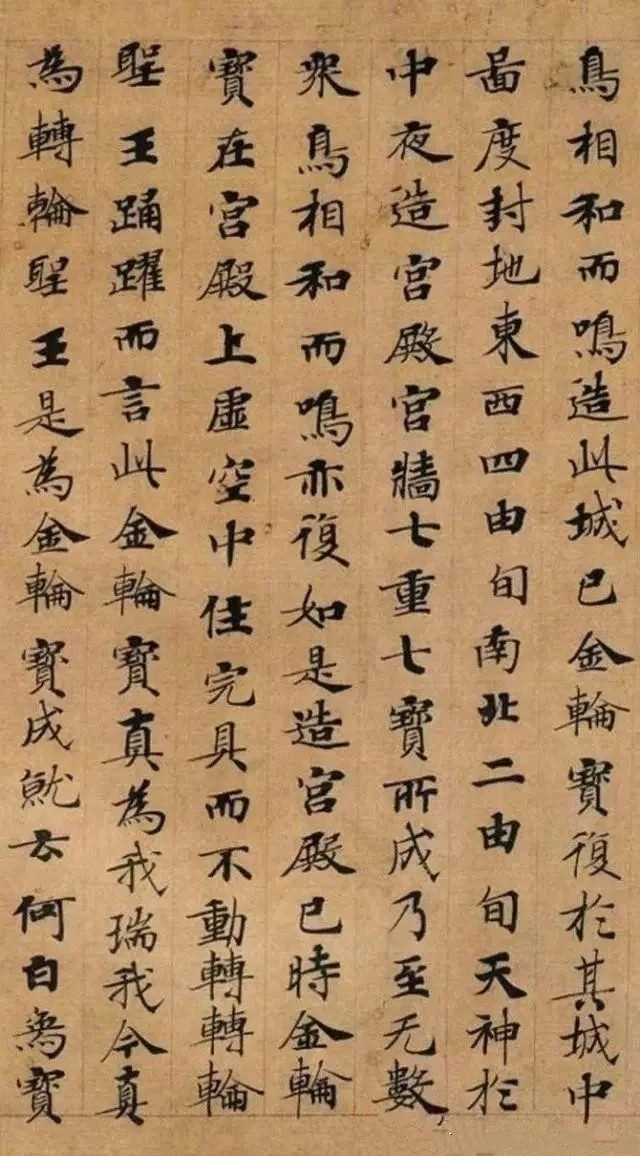 鳥相和而鳴造此城已金輪寳復於其城中
啚度封地東西四由旬南北二由旬天神於
中夜造宮殿宮牆七重七寳所成乃至无數
衆鳥相和而鳴亦復如是造宮殿已時金輪
寳在宮殿上虛空中住完具而不動轉轉輪
聖王踊躍而言此金輪寳真為我瑞我今真
為轉輪聖王是為金輪寳成就云何白象寳